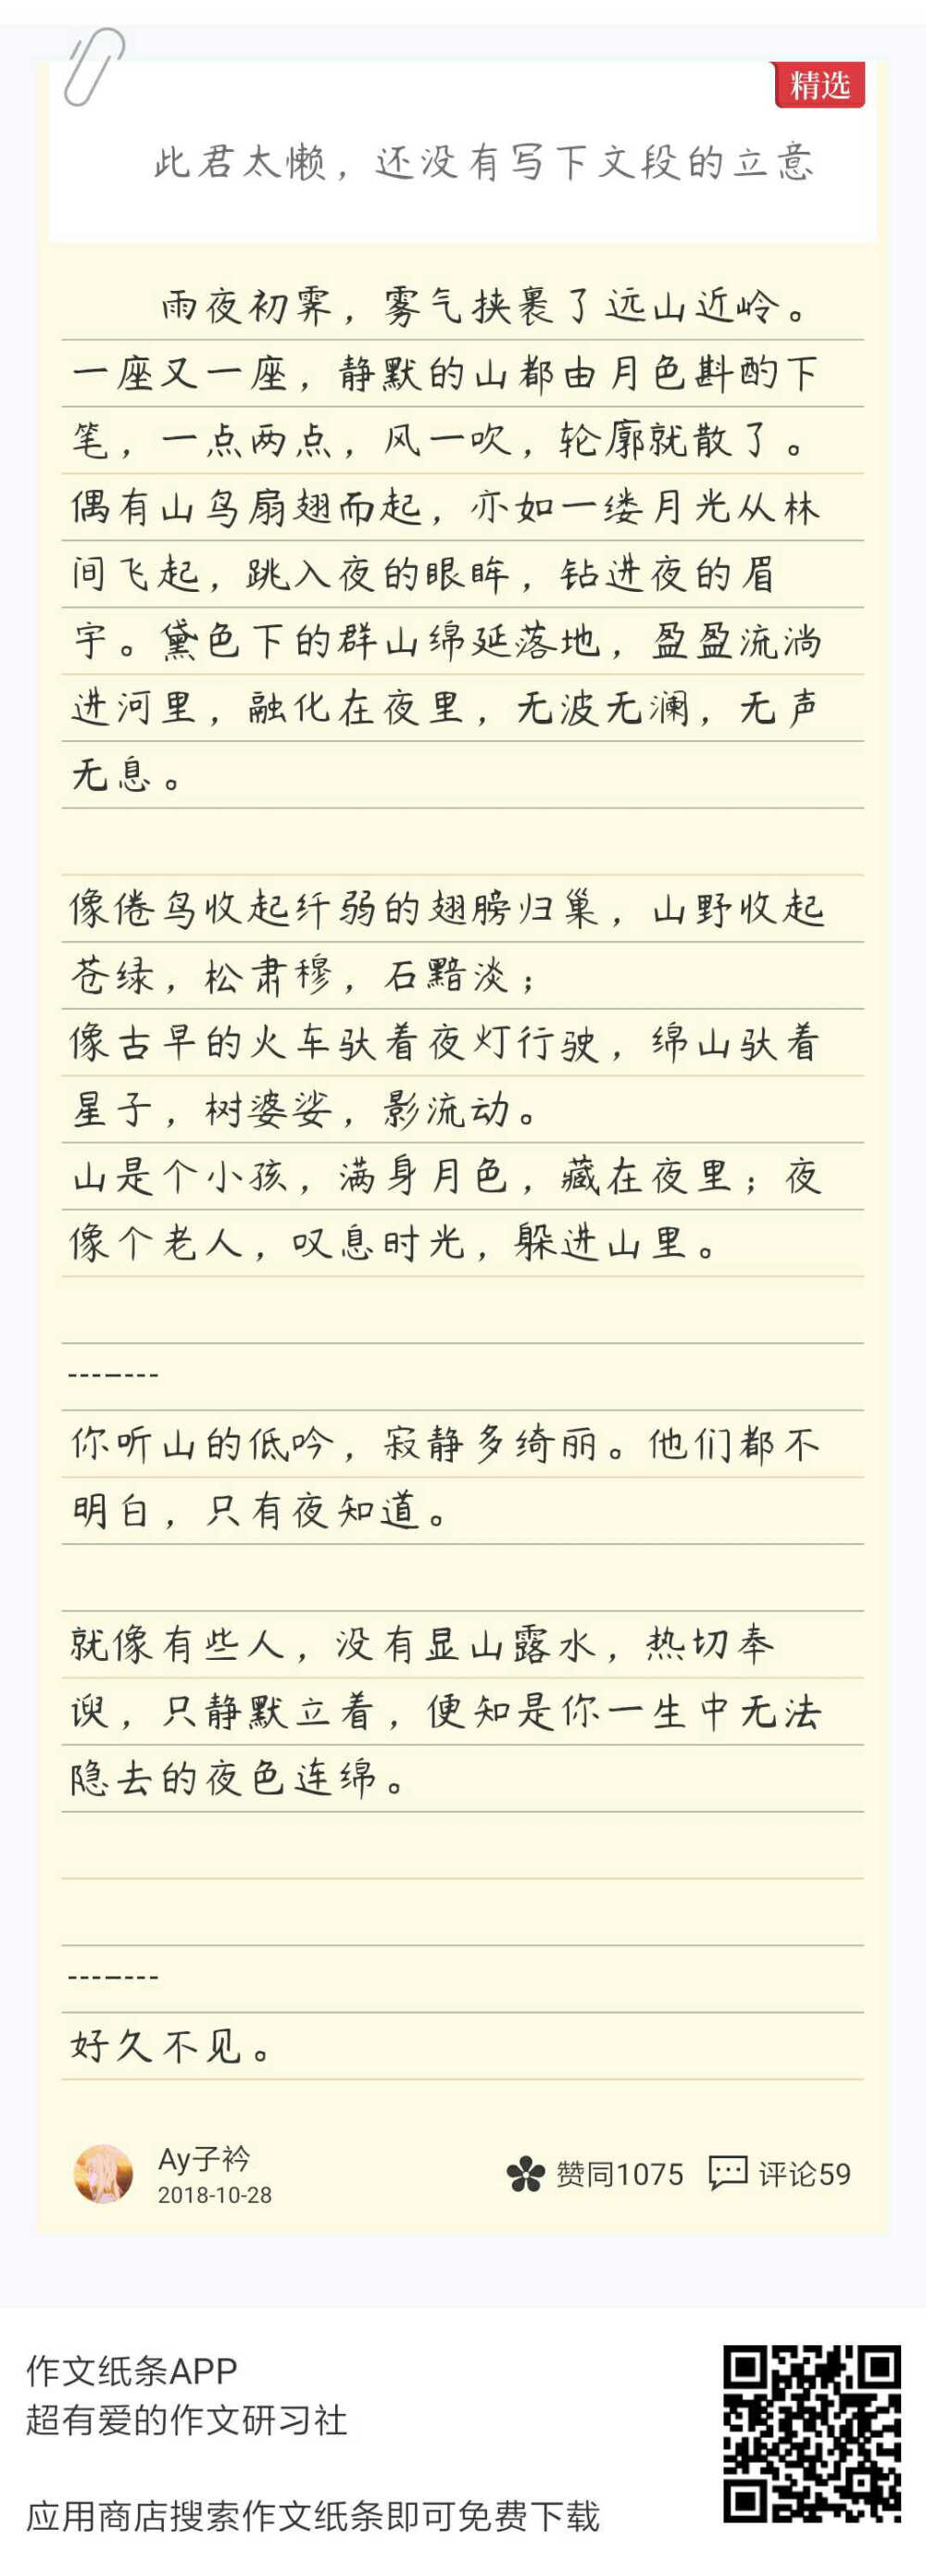 精选
此君太懒，还没有写下文段的立意
雨夜初霁，雾气挟裹了远山近岭。
一座又一座，静默的山都由月色斟酌下
笔，一点两点，风一吹，轮廓就散了。
偶有山鸟扇翅而起，亦如一缕月光从林
间飞起，跳入夜的眼眸，钻进夜的眉
宇。黛色下的群山绵延落地，盈盈流淌
进河里，融化在夜里，无波无澜，无声
无息。
像倦鸟收起纤弱的翅膀归巢，山野收起
苍绿，松肃穆，石黯淡；
像古早的火车驮着夜灯行驶，绵山驮着
星子，树婆娑，影流动。
山是个小孩，满身月色，藏在夜里；夜
像个老人，叹息时光，躲进山里。
-------
你听山的低吟，寂静多绮丽。他们都不
明白，只有夜知道。
就像有些人，没有显山露水，热切奉
谀，只静默立着，便知是你一生中无法
隐去的夜色连绵。
-------
好久不见。
Ay子衿
2018-10-28
赞同1075 评论59
作文纸条APP
超有爱的作文研习社
应用商店搜索作文纸条即可免费下载